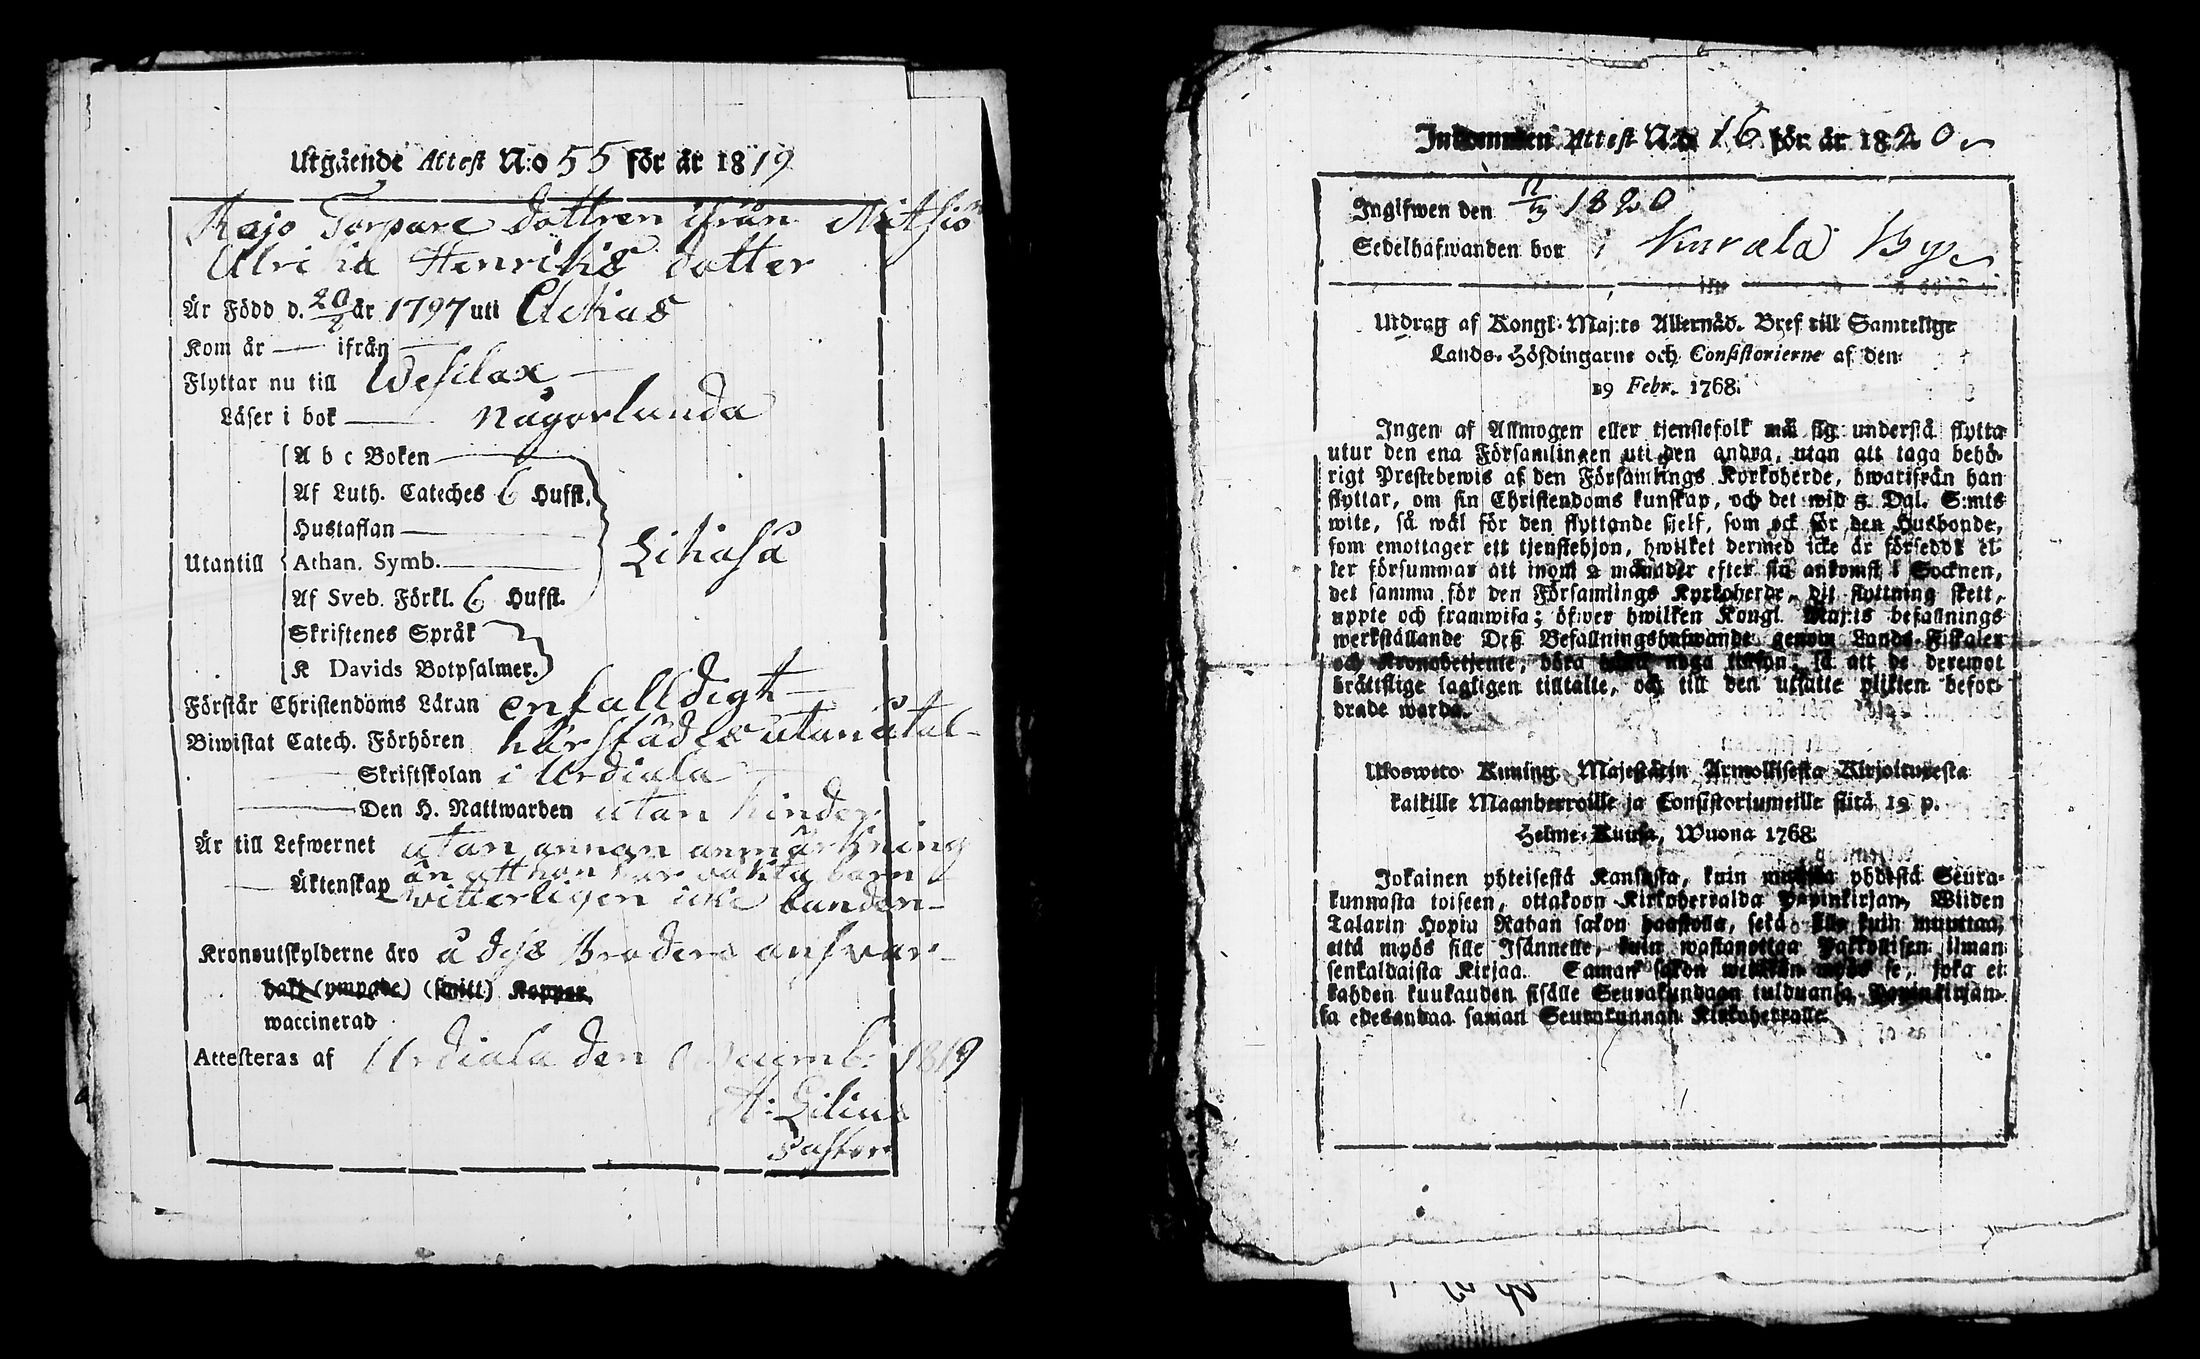 Utgående Attest N:o 55 för år 1819
Rajo Torpare dottren ifrån Nitsiö
Ulrika Henriks dotter
Är Född d. 20/2 år 1797 uti Ackas
Kom år — ifrån —
Flyttar nu till Wesilax
Läser i bok — någorlunda
A b c Boken
Af Luth. Cateches 6 Hufst.
Hustaflan
Utantill Athan. Symb. Likaså
Af Sveb. Förkl. 6 Hufst.
Skriftenes Språk
K Davids Botpsalmer.
Förstår Christendoms Läran enfalldigt
Biwistat Catech. Förhören härstädes utan åtal
Skriftskolan i Urdiala
Den H. Nattwarden utan hinder
Är till Lefwernet utan annan anmärkning
än att hon har oäkta barn
Äktenskap witterligen icke bunden
Kronoutskylderne äro å dess Broders answar
haft (ympade) (smitt) Koppor,
waccinerad
Attesteras af Urdiala den Decemb: 1819
A: Lilius
Pastor
Inkommen Attest N:o 16 för år 1820
Ingifwen den 12/3 1820
Sedelhafwanden bor i Kurala By
Utdrag af Kongl. Maj:ts Allernåd. Bref till Samtelige
Lands-Höfdingarne och Consistorierne af den
19 Febr. 1768.
Ingen af Allmogen eller tjenstefolk må sig understå flytta
utur den ena Församlingen uti den andra, utan att taga behö-
rigt Prestebewis af den Församlings Kyrkoherde, hwarifrån han
flyttar, om sin Christendoms kunskap, och det wid 5 Dal. S:mts
wite, så wäl för den flyttande sjelf, som ock för den Husbonde,
som emottager ett tjenstehjon, hwilket dermed icke är förseddt el-
ler försummar att inom 2 månader efter sin ankomst i Socknen,
det samma för den Församlings Kyrkoherde, dit flyttning skett,
uppte och framwisa; öfwer hwilken Kongl. Maj:ts befallnings
werkställande Deß Befallningshafwande genom Lands-Fiskaler
och Kronobetjente, böra hålla noga tillsyn, så att de deremot
brättslige lagligen tilltalte, och till den utsatte plikten befor-
drade warda.
Ulosweto Kuning. Majestätin Armollisesta Kirjoituxesta
kaikille Maanherroille ja Consistoriumeille siitä 19 p.
Helme-Kuusa, Wuona 1768.
Jokainen yhteisestä Kansasta, kuin muutta yhdestä Seura-
kunnasta toiseen, ottakoon Kirkoherralda Papinkirjan, Wiiden
Talarin Hopia Rahan sakon haastolla, sekä se kuin muuttaa,
että myös sille Isännelle, kuin wastanottaa Palkollisen ilman
senkaldaista Kirjaa. Saman sakon wetäkön myös se, joka ei
kahden kuukauden sisälle Seurakundaan tulduansa Papinkirjan-
sa edesandaa saman Seurakunnan Kirkoherralle.